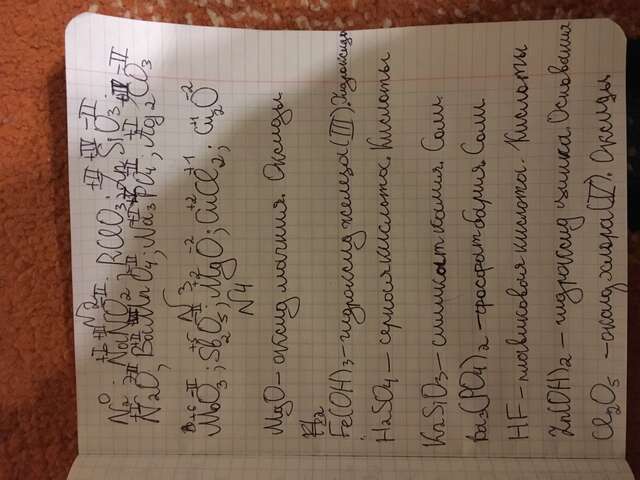 N2
N₂⁰; Na⁺ᴵN⁺ᴵᴵᴵO₂⁻ᴵᴵ; RClO₃; Zn⁺ᴵᴵSi⁺ᴵⱽO₃⁻ᴵᴵ;
N₂⁺ᴵO⁻ᴵᴵ; Ba⁺ᴵᴵMnO₄; Na₃⁺ᴵPO₄; Ag₂⁺ᴵCO₃
N3
Mo⁺⁶O₃⁻ᴵᴵ; Sb₂⁺⁵O₅⁻ᴵᴵ; Mg⁺²O⁻²; Cu⁺²Cl₂⁺¹; Cu₂⁺¹O⁻²
N4
MgO – оксид магния. Оксиды
Fe(OH)3 – гидроксид железа(III). Гидроксиды
H2SO4 – серная кислота. Кислоты
K2SiO3 – силикат калия. Соли
Ba3(PO4)2 – фосфат бария. Соли
HF – плавиковая кислота. Кислоты
Zn(OH)2 – гидроксид цинка. Основания
Cl2O5 – оксид хлора(V). Оксиды